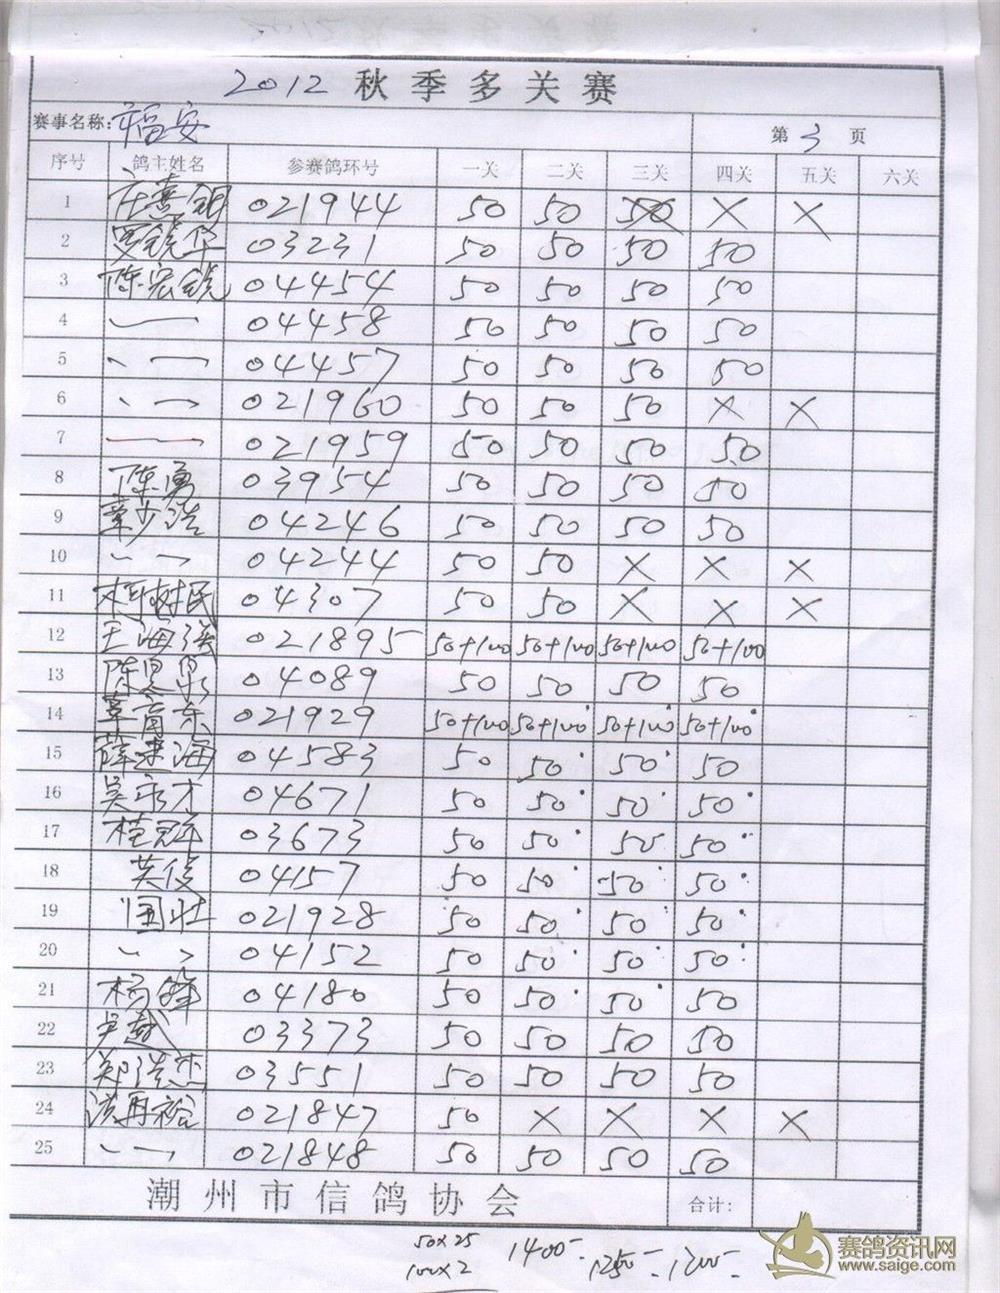 2012 秋季多关赛
赛事名称: 福安 第 3 页
序号 鸽主姓名 参赛鸽环号 一关 二关 三关 四关 五关 六关
1 021944 50 50 50 × ×
2 03231 50 50 50 50
3 陈宏锐 04454 50 50 50 50
4 04458 50 50 50 50
5 04457 50 50 50 50
6 021960 50 50 50 × ×
7 021959 50 50 50 50
8 陈勇 03954 50 50 50 50
9 04246 50 50 50 50
10 04244 50 50 × × ×
11 04307 50 50 × × ×
12 王海强 021895 50+100 50+100 50+100 50+100
13 04089 50 50 50 50
14 021929 50+100 50+100 50+100 50+100
15 04583 50 50 50 50
16 04671 50 50 50 50
17 03673 50 50 50 50
18 英俊 04157 50 50 50 50
19 国壮 021928 50 50 50 50
20 04152 50 50 50 50
21 杨锋 04180 50 50 50 50
22 03373 50 50 50 50
23 郑浩杰 03551 50 50 50 50
24 021847 50 × × × ×
25 021848 50 50 50 50
潮州市信鸽协会 合计:
50×25 1400- 1250- 1200-
100×2
赛鸽资讯网
www.saige.com